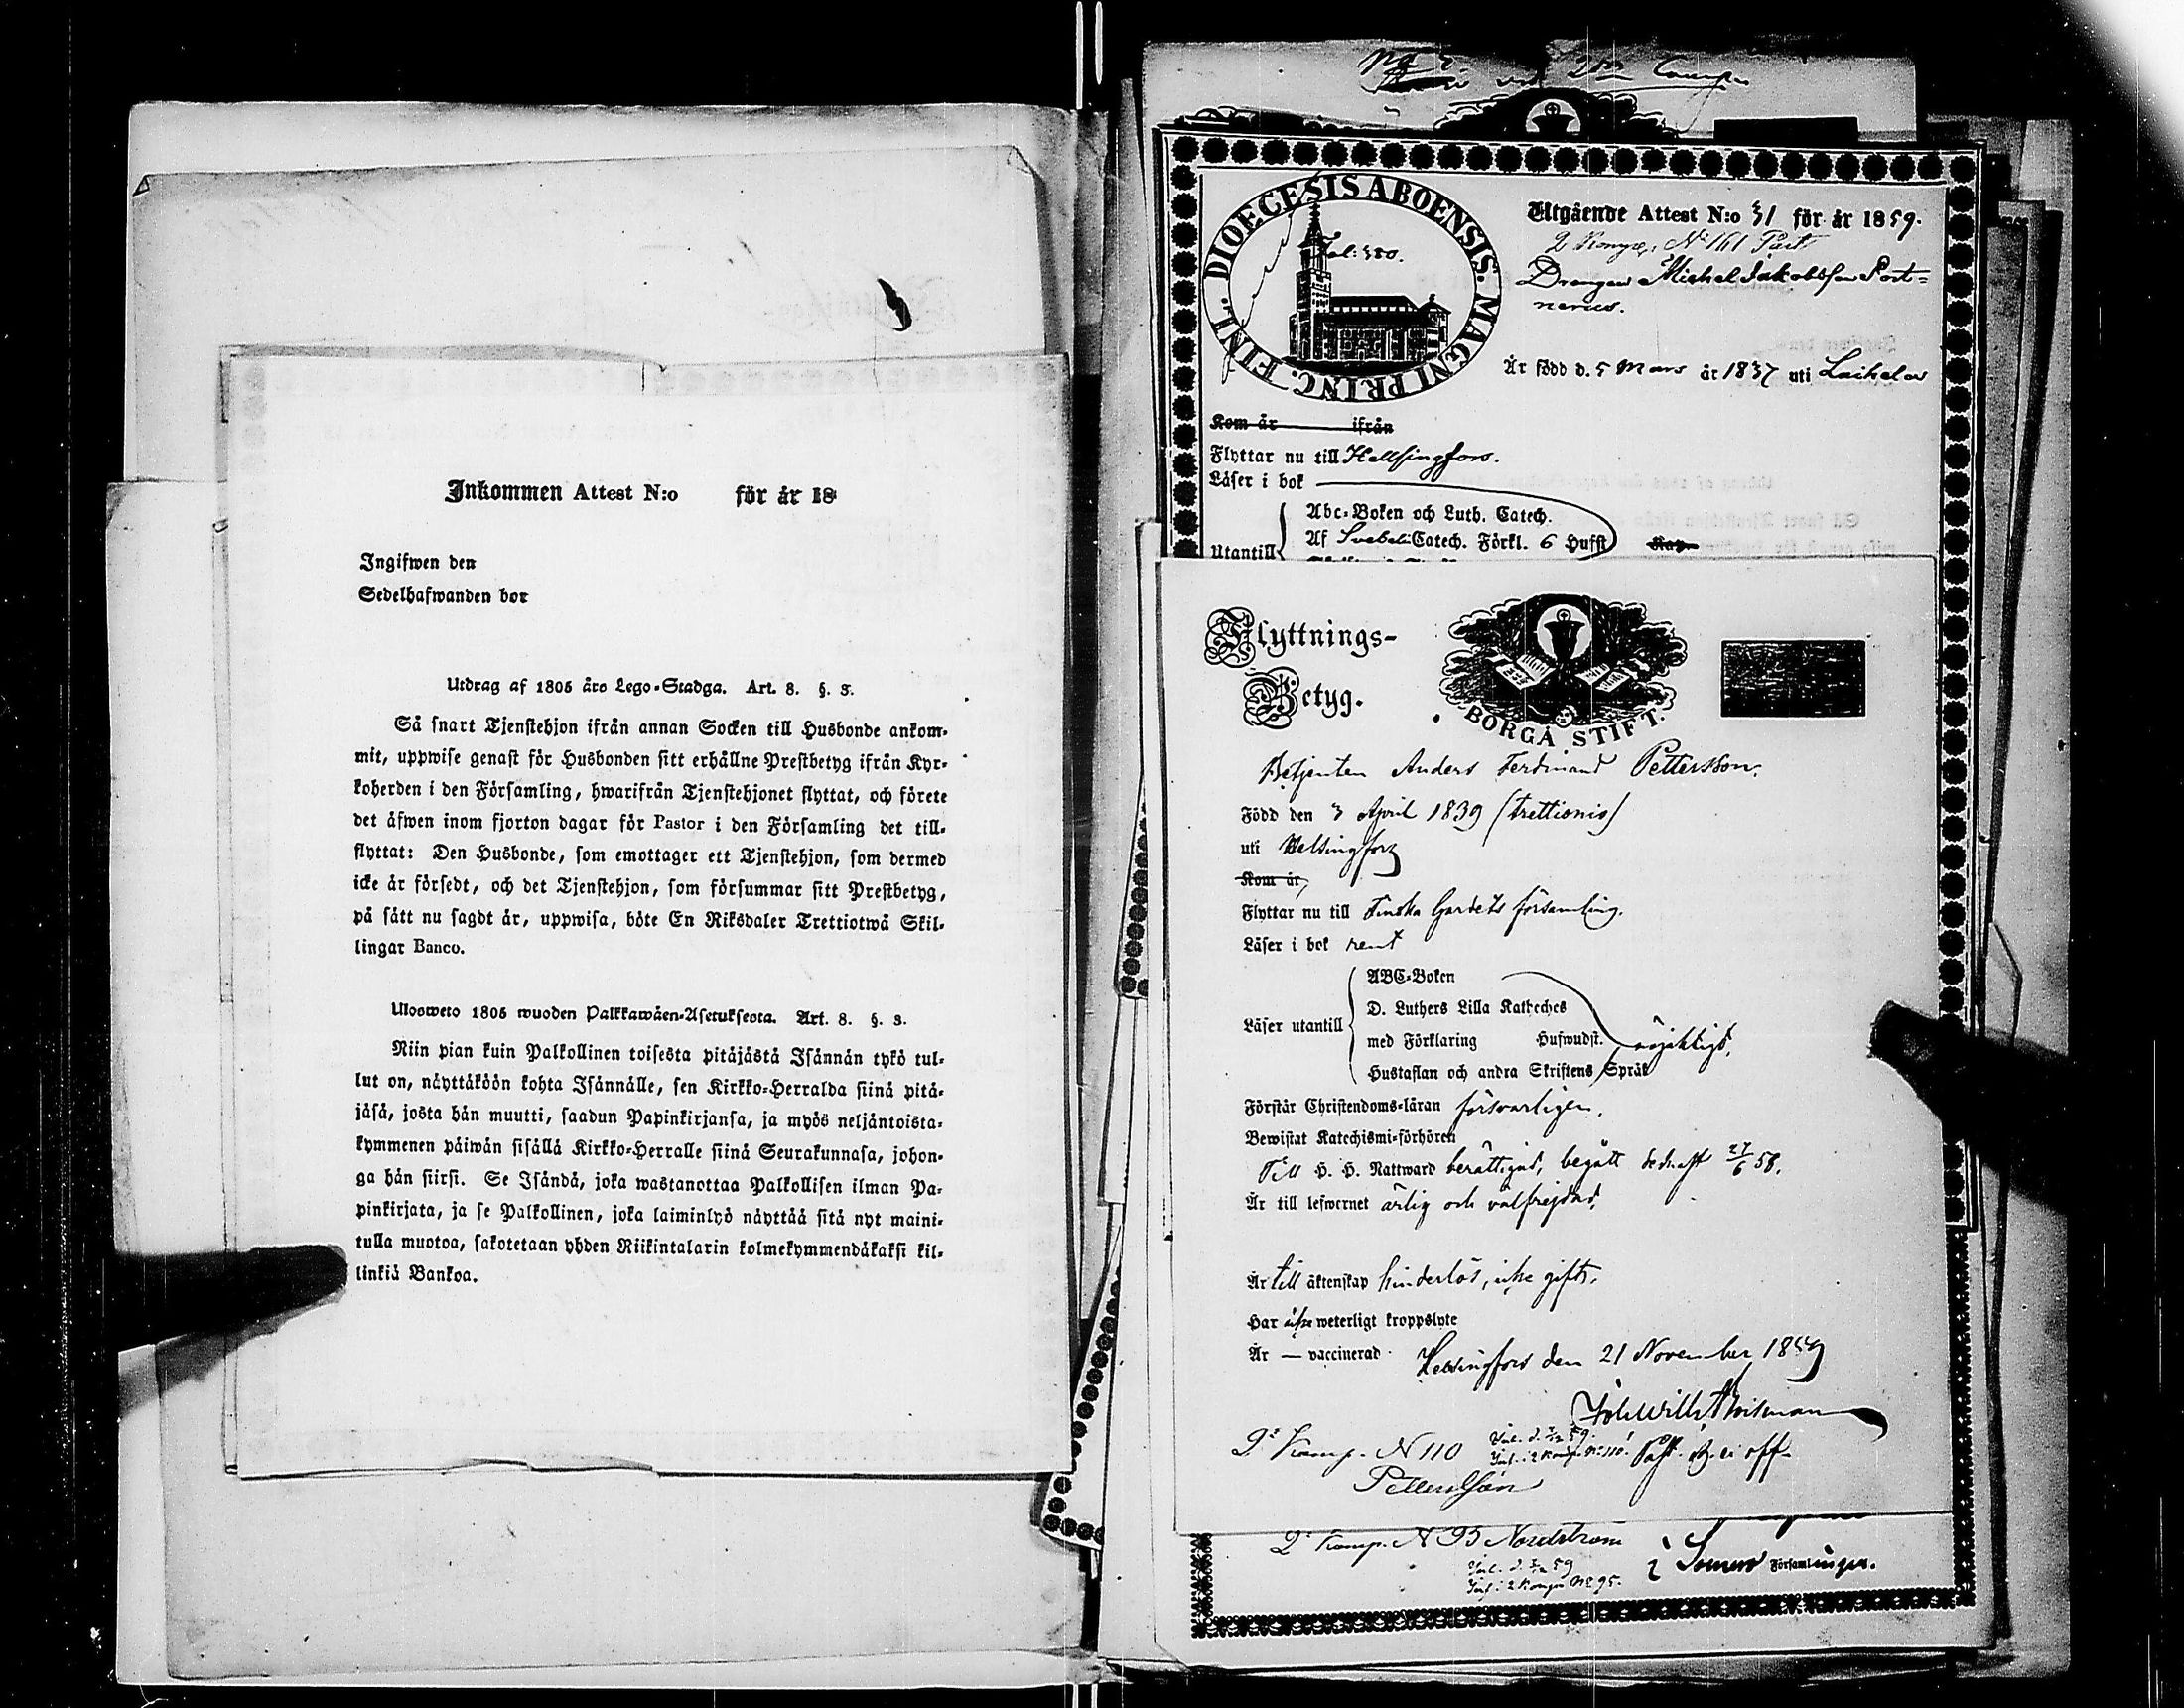 Inkommen Attest N:o för år 18
Ingifwen den
Sedelhafwanden bor
Utdrag af 1805 års Lego-Stadga. Art. 8. §. 3.
Så snart Tjenstehjon ifrån annan Socken till Husbonde ankom-
mit, uppwise genast för Husbonden sitt erhållne Prestbetyg ifrån Kyr-
koherden i den Församling, hwarifrån Tjenstehjonet flyttat, och förete
det äfwen inom fjorton dagar för Pastor i den Församling det till-
flyttat: Den Husbonde, som emottager ett Tjenstehjon, som dermed
icke är försedt, och det Tjenstehjon, som försummar sitt Prestbetyg,
på sätt nu sagdt är, uppwisa, böte En Riksdaler Trettiotwå Skil-
lingar Banco.
Ulosweto 1805 wuoden Palkkawäen-Asetuksesta. Art. 8. §. 3.
Niin pian kuin Palkollinen toisesta pitäjästä Isännän tykö tul-
lut on, näyttäköön kohta Isännälle, sen Kirkko-Herralda siinä pitä-
jäsä, josta hän muutti, saadun Papinkirjansa, ja myös neljäntoista-
kymmenen päiwän sisällä Kirkko-Herralle siinä Seurakunnasa, johon-
ga hän siirsi. Se Isändä, joka wastanottaa Palkollisen ilman Pa-
pinkirjata, ja se Palkollinen, joka laiminlyö näyttää sitä nyt maini-
tulla muotoa, sakotetaan yhden Riikintalarin kolmekymmendäkaksi kil-
linkiä Bankoa.
DIOECESIS ABOENSIS. MAGNI PRINC. FINL.
Fol: 380.
Utgående Attest N:o 31 för år 1859.
2 Komp. No 161 Part
Drängen Michel Jakobsson Port-
nerus.
Är född d. 5 Mars år 1837 uti Laihela
Kom år ifrån
Flyttar nu till Hellsingfors.
Läser i bok
Abc-Boken och Luth. Catech.
Af Svebeli Catech. Förkl. 6 Hufst
Utantill
Flyttnings-
Betyg.
BORGÅ STIFT.
Betjenten Anders Ferdinand Pettersson.
Född den 3 April 1839 (trettionio)
uti Helsingfors
Kom år
Flyttar nu till Finska Gardets församling.
Läser i bok rent
ABC-Boken
D. Luthers Lilla Katheches
Läser utantill med Förklaring Hufwudst.
Hustaflan och andra Skriftens Språk
Förstår Christendoms-läran försvarligen.
Bewistat Katechismi-förhören
Till H. H. Nattward berättigad, begått sednast 27/6 58.
Är till lefwernet ärlig och välfrejdad.
Är till äktenskap hinderlös, icke gift.
Har icke weterligt kroppslyte
Är — vaccinerad. Helsingfors den 21 November 1859
2a Komp. N 110
Pettersson
2a Komp. N 95 Nordström
i Somero Församlingen.